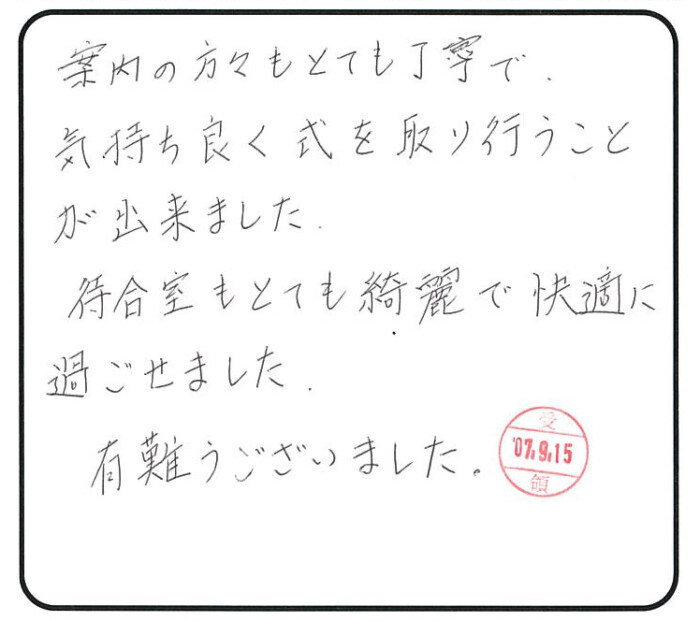 案内の方々もとても丁寧で、
気持ち良く式を取り行うこと
が出来ました.
待合室もとても綺麗で快適に
過ごせました.
有難うございました。
受
'07.9.15
領